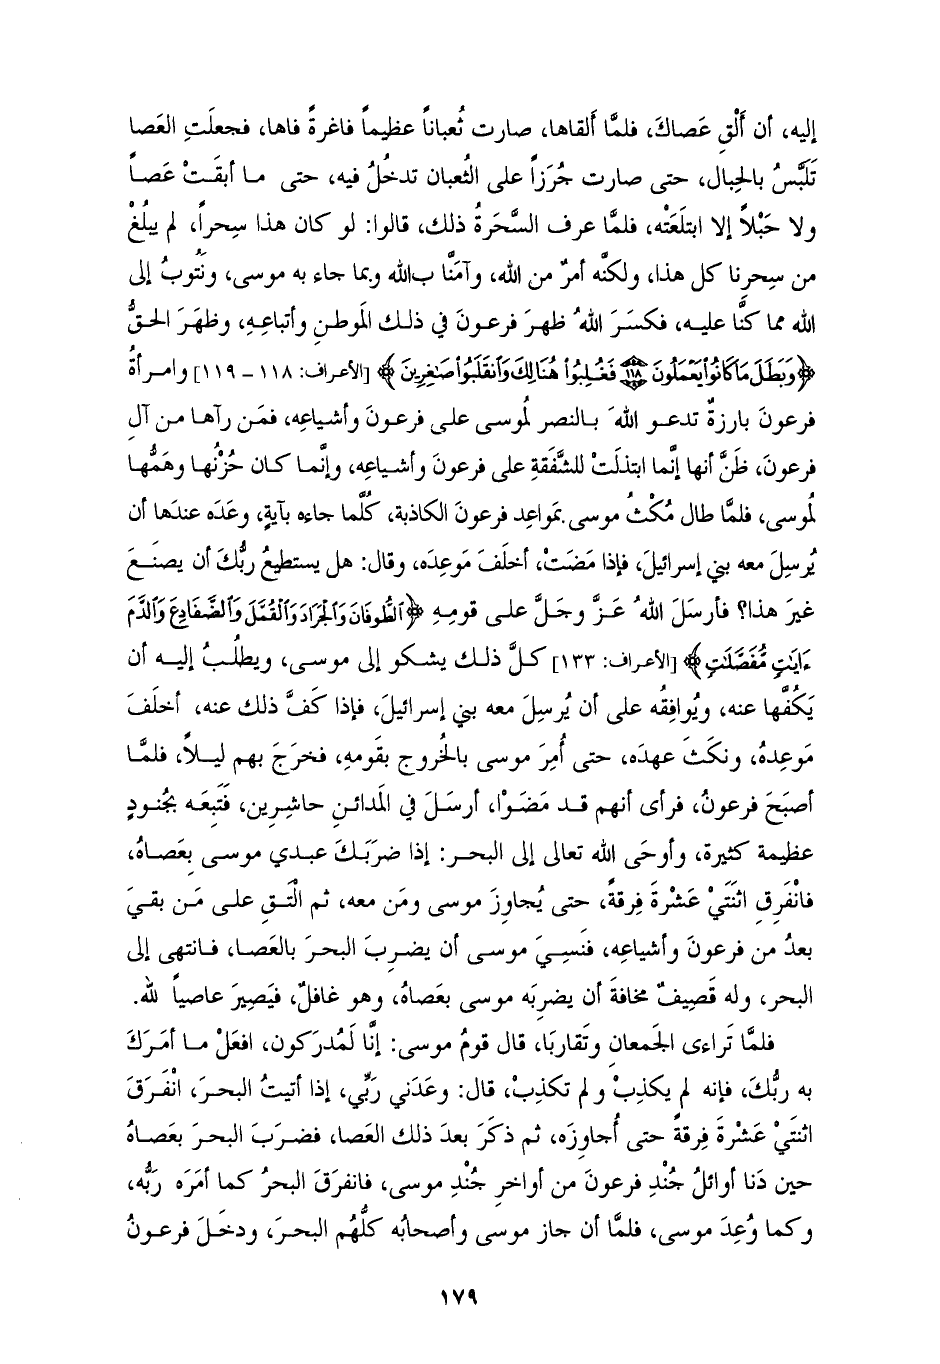 إليه، أن أَلْقِ عَصاكَ، فلمَّا أَلقاها، صارت ثُعباناً عظيماً فاغرةً فاها، فجعلَتِ العَصا
تَلَبَّسُ بالحِبال، حتى صارت جُرَزاً على الثُعبان تدخُلُ فيه، حتى ما أبقَتْ عَصاً
ولا حَبْلاً إلا ابتلَعَتْه، فلمَّا عرف السَّحَرَةُ ذلك، قالوا: لو كان هذا سِحراً، لم يبلُغْ
من سِحرنا كل هذا، ولكنَّه أمرٌ من الله، وآمَنَّا بالله وبما جاء به موسى، ونَتُوبُ إلى
الله مما كنَّا عليه، فكسَرَ اللهُ ظهرَ فرعونَ في ذلك المَوطنِ وأتباعِهِ، وظهَرَ الحقُّ
﴿وَبَطَلَ مَا كَانُواْ يَعْمَلُونَ ۝١١٨ فَغُلِبُواْ هُنَالِكَ وَانقَلَبُواْ صَٰغِرِينَ﴾ [الأعراف: ١١٨ - ١١٩] وامرأةُ
فرعونَ بارزةٌ تدعو اللهَ بالنصر لمُوسى على فرعونَ وأشياعِه، فمَن رآها من آلِ
فرعونَ، ظَنَّ أنها إنَّما ابتذلَتْ للشَّفَقةِ على فرعونَ وأشياعِه، وإنَّما كان حُزْنُها وهَمُّها
لمُوسى، فلمَّا طال مُكْثُ موسى بمَواعِد فرعونَ الكاذبة، كُلَّما جاءه بآيةٍ، وعَدَه عندَها أن
يُرسِلَ معه بني إسرائيلَ، فإذا مَضَتْ، أخلَفَ مَوعِدَه، وقال: هل يستطيعُ ربُّكَ أن يصنَعَ
غيرَ هذا؟ فأرسَلَ اللهُ عَزَّ وجَلَّ على قومِهِ ﴿الطُّوفَانَ وَالْجَرَادَ وَالْقُمَّلَ وَالضَّفَادِعَ وَالدَّمَ
ءَايَٰتٍ مُّفَصَّلَٰتٍ﴾ [الأعراف: ١٣٣] كلَّ ذلك يشكو إلى موسى، ويطلُبُ إليه أن
يَكُفَّها عنه، ويُوافِقُه على أن يُرسِلَ معه بني إسرائيلَ، فإذا كَفَّ ذلك عنه، أخلَفَ
مَوعِدهُ، ونكَثَ عهدَه، حتى أُمِرَ موسى بالخُروج بقَومِهِ، فخرَجَ بهم ليلاً، فلمَّا
أصبَحَ فرعونُ، فرأى أنهم قد مَضَوْا، أرسَلَ في المَدائنِ حاشِرِين، فَتَبِعَه بجُنودٍ
عظيمة كثيرة، وأوحَى الله تعالى إلى البحر: إذا ضرَبَكَ عبدي موسى بعَصاهُ،
فانْفَرِقِ اثنَتَيْ عَشْرةَ فِرقةً، حتى يُجاوِزَ موسى ومَن معه، ثم الْتَقِ على مَن بقيَ
بعدُ من فرعونَ وأشياعِه، فنَسِيَ موسى أن يضرِبَ البحرَ بالعَصا، فانتهى إلى
البحر، وله قَصِيفٌ مخافةَ أن يضرِبَه موسى بعَصاهُ، وهو غافلٌ، فيَصِيرَ عاصياً للهِ.
فلمَّا تَراءى الجَمعانِ وتَقاربَا، قال قومُ موسى: إنَّا لَمُدرَكون، افعَلْ ما أمَرَكَ
به ربُّكَ، فإنه لم يكذِبْ ولم تكذِبْ، قال: وعَدَني رَبِّي، إذا أتيتُ البحرَ، انْفَرَقَ
اثنَتَيْ عَشْرةَ فِرقةً حتى أُجاوِزَه، ثم ذكَرَ بعدَ ذلك العَصا، فضرَبَ البحرَ بعَصاهُ
حين دَنا أوائلُ جُنْدِ فرعونَ من أواخرِ جُنْدِ موسى، فانفرَقَ البحرُ كما أمَرَه رَبُّه،
وكما وُعِدَ موسى، فلمَّا أن جاز موسى وأصحابُه كلُّهُم البحرَ، ودخَلَ فرعونُ
١٧٩